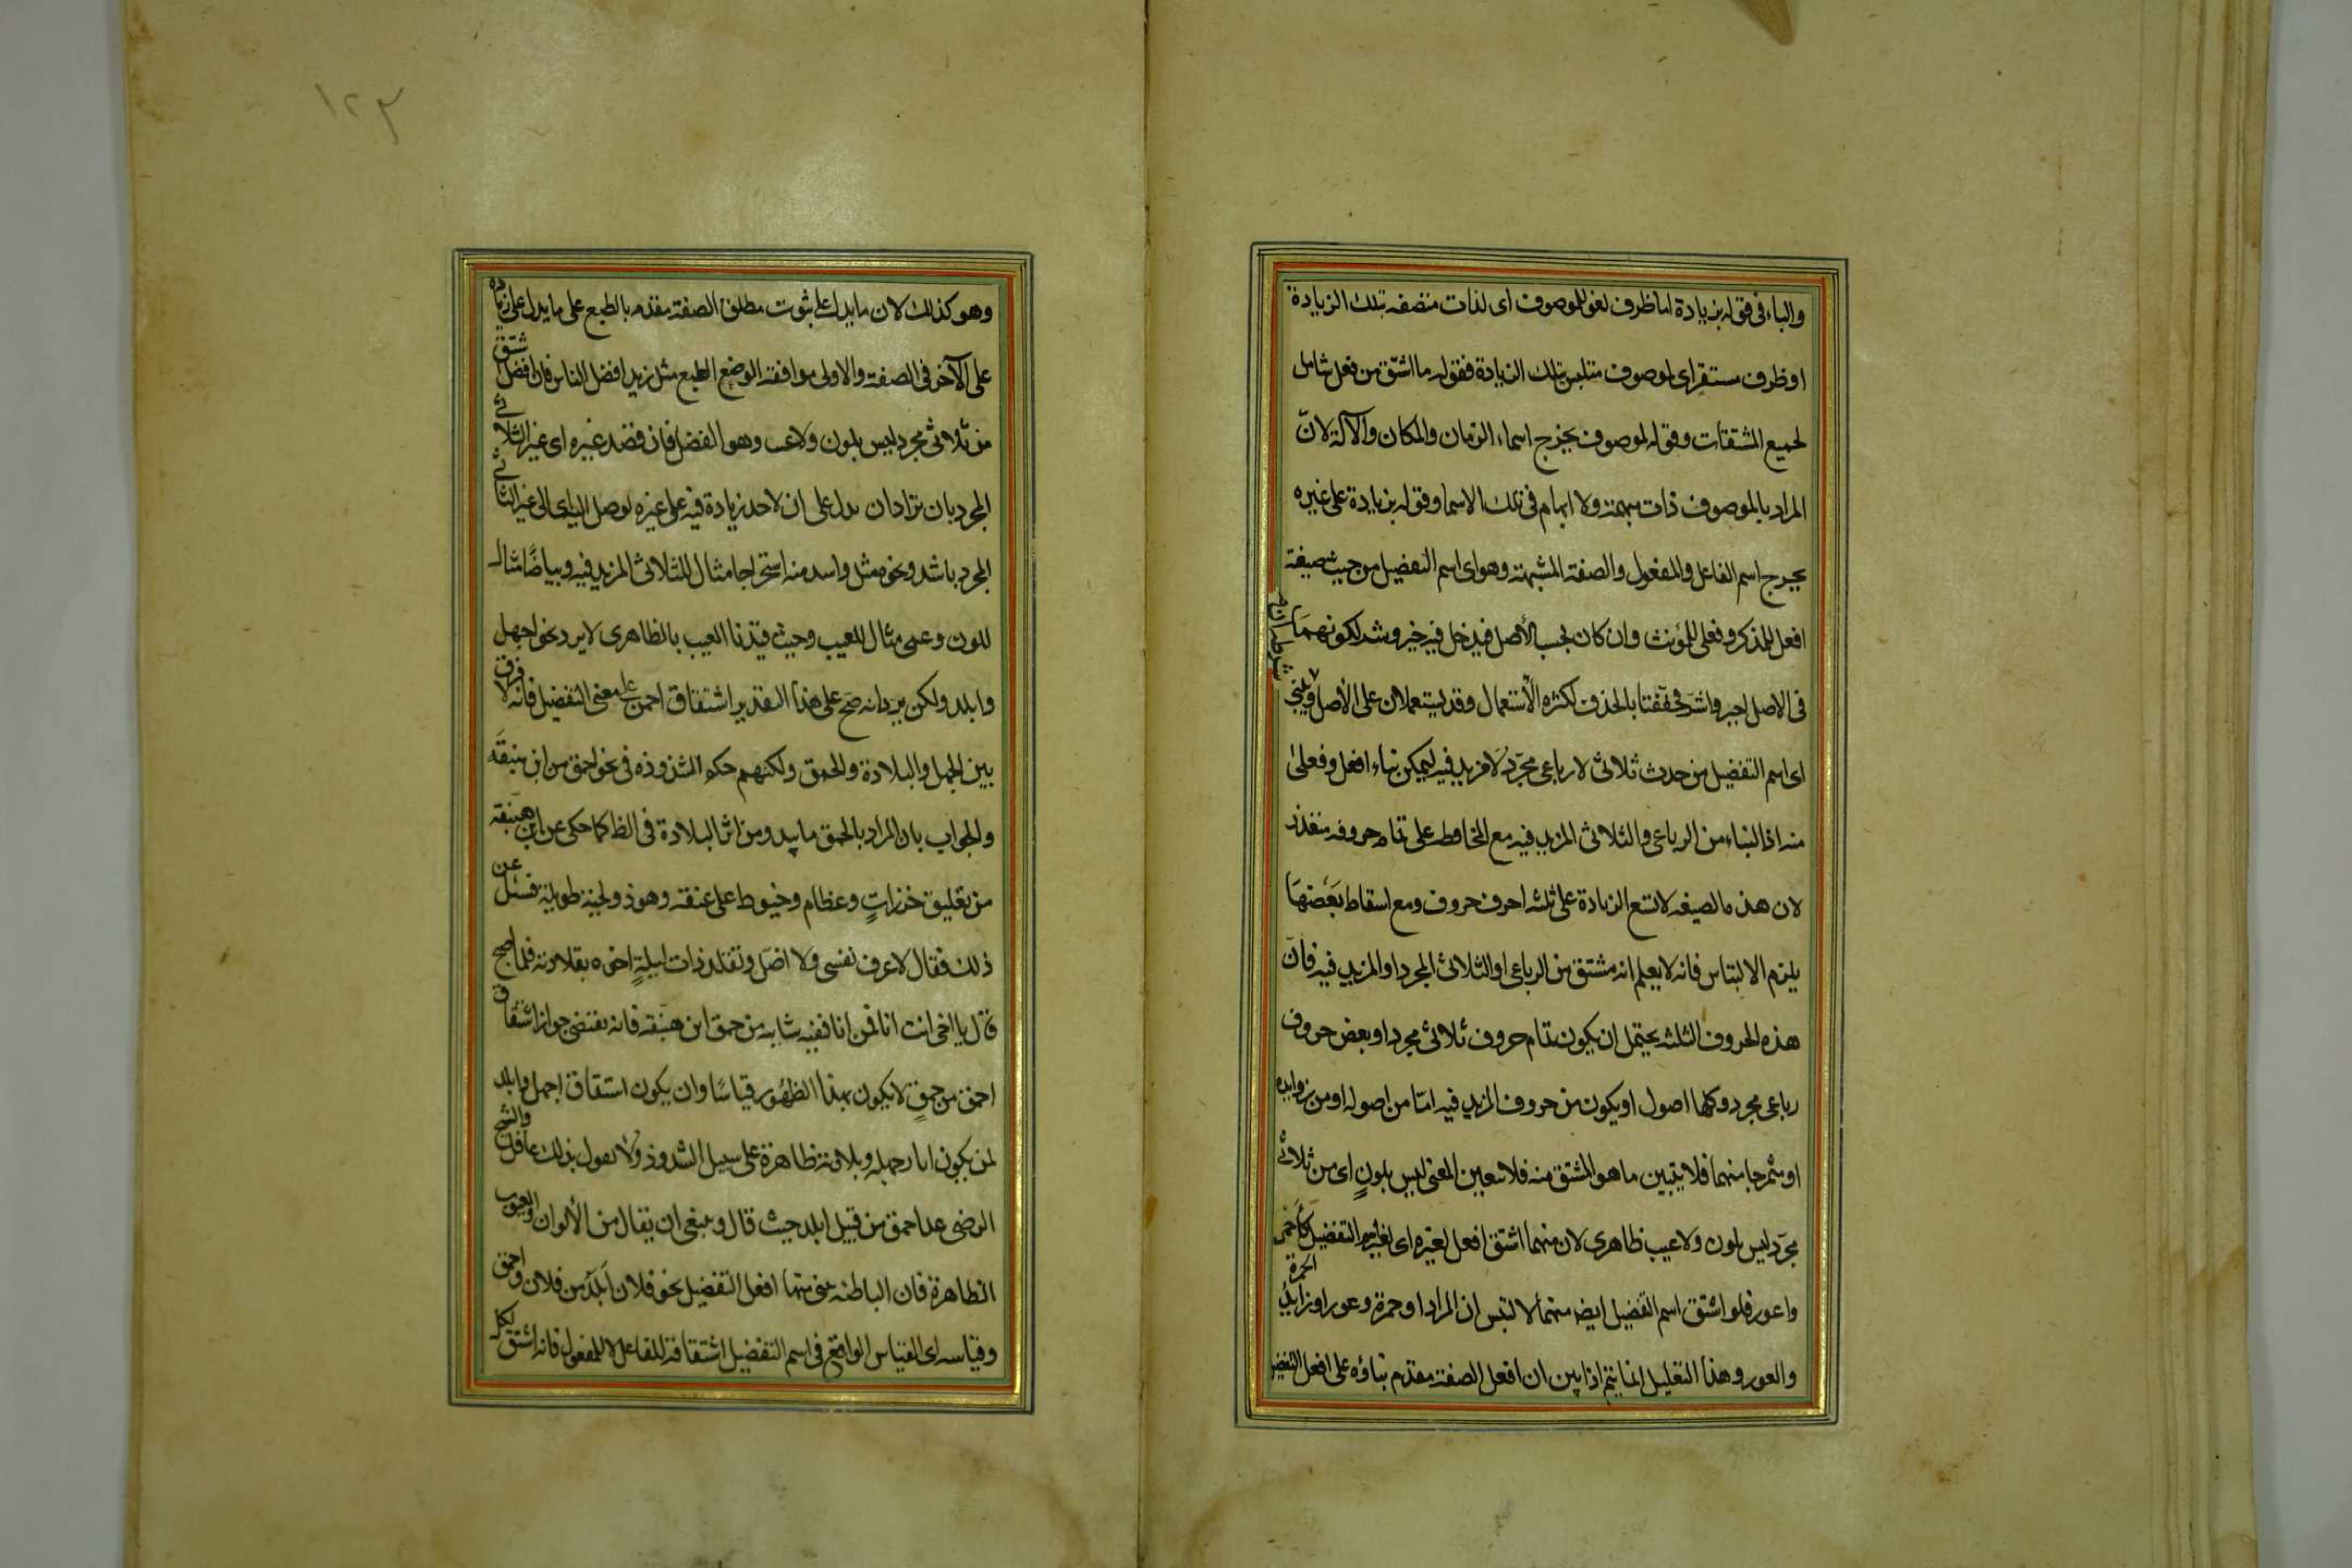 والباء في قوله بزيادة اما ظرف لغو للموصوف اى لذات متصفه بتلك الزيادة
او ظرف مستقر اى لموصوف متلبس بتلك الزيادة فقوله ما اشتق من فعل شامل
لجميع المشتقات وقوله لموصوف يخرج اسماء الزمان والمكان والآلة لانّ
المراد بالموصوف ذات مبهمة ولا ابهام فى تلك الاسما وقوله بزيادة على غيره
يخرج اسم الفاعل والمفعول والصفة المشبهة وهو اى اسم التفضيل من حيث صيغته
افعل للمذكر وفعلى للمؤنث وان كان بحسب الأصل فيدخل فيه خير وشر لكونهما
فى الاصل اخير واشرّ فخففتا بالحذف لكثره الأستعمال وقد يستعملان على الأصل ويبنى
اى اسم التفضيل من حدث ثلاثى لا رباعى مجرّد لا مزيد فيه ليمكن بناء افعل وفعلى
منه اذ البناء من الرباعى والثلاثى المزيد فيه مع المحافظه على تمام حروفه متعذر
لان هذه الصيغه لا تسع الزيادة على ثلثه احرف حروف ومع اسقاط بَعضهَا
يلزم الالبتاس فانه لا يعلم انه مشتق من الرباعى او الثلاثى المجرد او المزيد فيه فانّ
هذه الحروف الثلثه يحتمل ان يكون تمام حروف ثلاثى مجرد او بعض حروف
رباعى مجرد وكلها اصول او يكون من حروف المزيد فيه امّا من اصوله او من زوايده
او ممتزجا منهما فلا يتبين ما هو المشتق منه فلا يتعين المعنى ليس بلونٍ اى من ثلاثى
مجرّد ليس بلون ولا عيب ظاهرى لان منهما اشتق افعل لغيره اى لغير التفضيل كأحمر
واعور فلو اشتق اسم التفضيل ايضه منهما لالتبس ان المراد اذو حمرة وعور او زايد الحمرة
والعور وهذا التعليل انما يتم اذا بين ان افعل الصفة مقدم بناؤه على افعل التفضيل
١٢٣
وهو كذلك لان ما يدل على ثبوت مطلق الصفة مقدم بالطبع على ما يدل على زيادة
على الآخر فى الصفة والاولى موافقة الوضع الطبع مثل زيد افضل الناس فان افضل شتق
من ثلاثى مجرد ليس بلون ولا عيب وهو الفضل فان قصد غيره اى غير الثلاثى
المجرد بان يراد ان يدل على ان لاحد زيادة فيه على غيره توصل اليه اى الى غير الثلاثى
المجرد باشد ونحوه مثل واشد منه استخراجا مثال للثلاثى المزيد فيه وبياضًا مثال
للون وعمى مثال للعيب وحيث قيّدنا العيب بالظاهرى لا يرد نحو اجهل
وابلد ولكن يرد انه صحّ على هذا التقدير اشتقاق احمق على معنى التفضيل فانه لا فرق
بين الجهل والبلادة والحمق ولكنهم حكموا لشذوذه فى نحو احمق من ابن هبنقَه
والجواب بان المراد بالحمق ما يبدو من اثر البلادة فى الظ كما حكى عن ابن هبَنقه
من تعليق خرزاتٍ وعظام وخيوط على عنقه وهو ذو لحية طويلة فسئل عن
ذلك فقال لاعرف نفسى ولا اضلّ وتقلد ذات ليلةٍ اخوه بقلادته فلما اصبح
قال يا اخى انت انا فمن انا ففيه شايبه من حمق ابن هبنّقه فانه يقتضى جواز اشتقاق
احمق من حمقٍ لا يكون بهذا الظهُور قياسًا وان يكون اشتقاق اجهل وابلد
لمن يكون اثار جهله وبلادته ظاهرة على سبيل الشذوذ ولا يقول بذلك عاقل والشيخ
الرضى عد احمق من قبيل ابلد حيث قال وينبغى ان يقال من الألوان والعيوب
الظاهرة فان الباطنه يبنى منها افعل التفضيل نحو فلان أبلَدُ من فلان واحمق
وقياسه اى القياس الواقع فى اسم التفضيل اشتقاقه للفاعل لا للمفعول فانه اشتق لكل